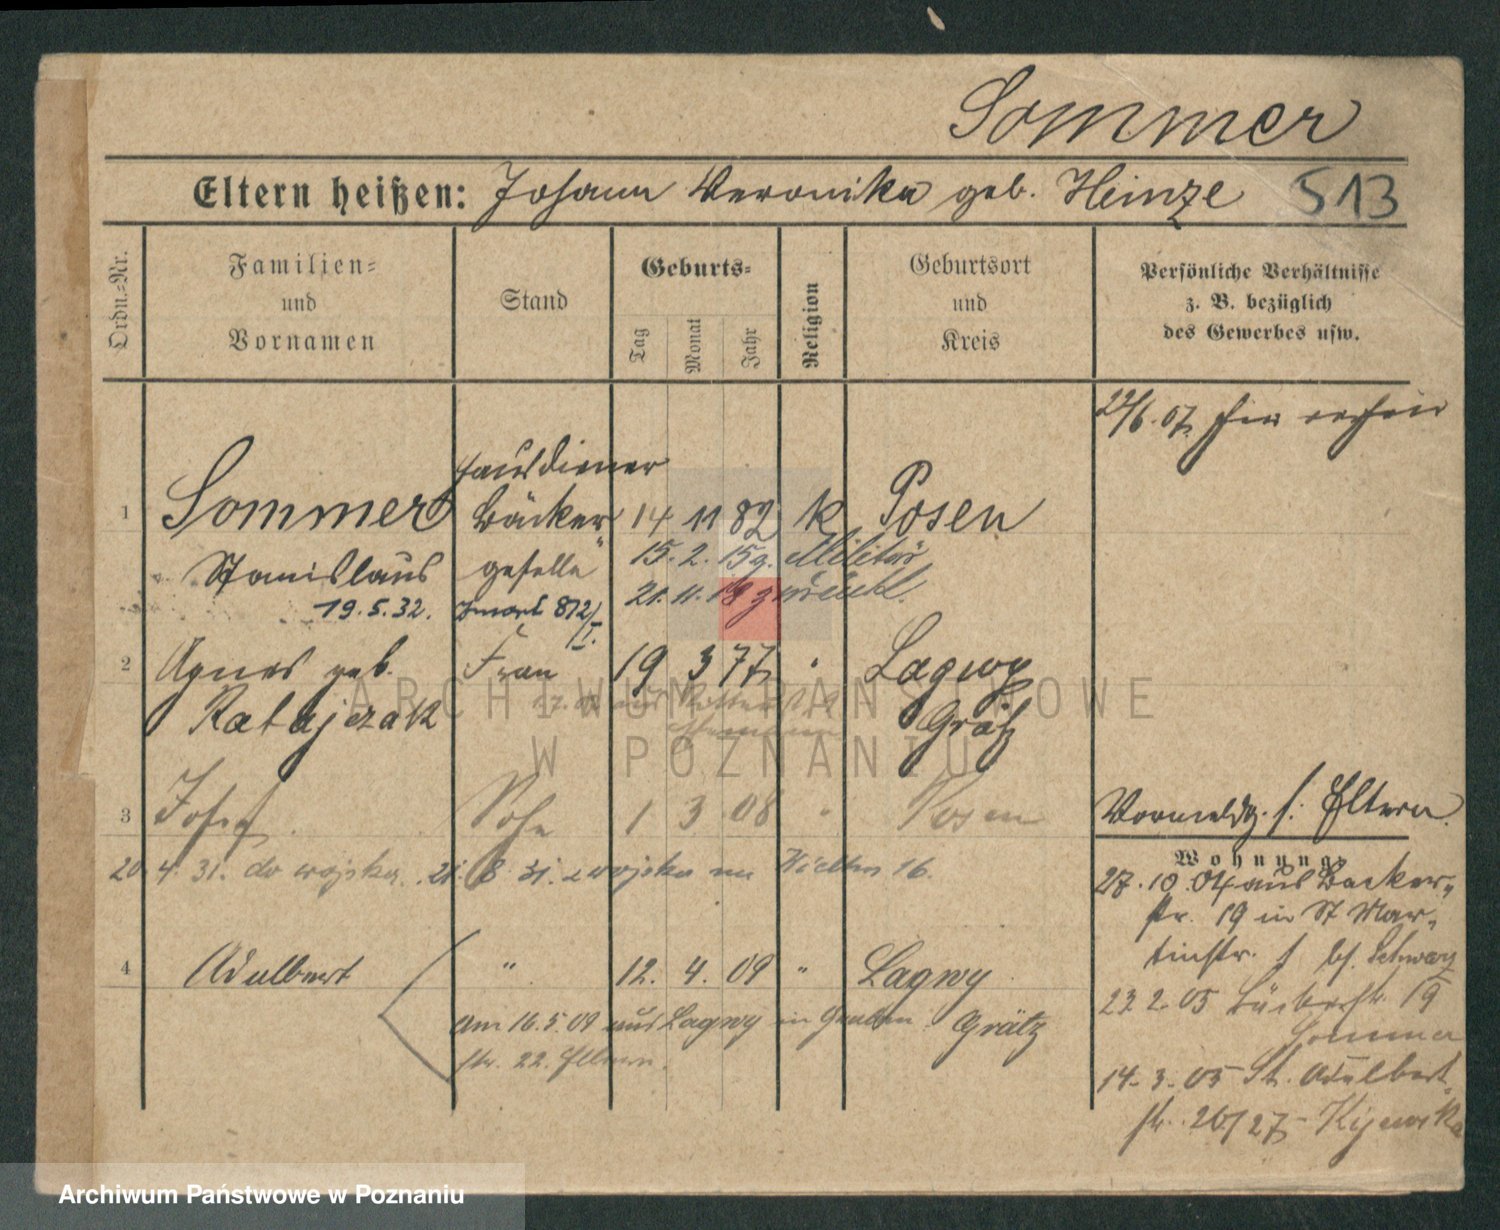 Sommer
Eltern heißen: Johann Veronika geb. Heinze 513
Ordn.=Nr.
Familien=
und
Vornamen
Stand
Geburts=
Tag
Monat
Jahr
Religion
Geburtsort
und
Kreis
Persönliche Verhältnisse
z. B. bezüglich
des Gewerbes usw.
22/6.07.
Hausdiener
1 Sommer Bäcker 14 11 82 k Posen
Stanislaus geselle 15. 2. 15 z. Militär
19.5.32. 21. 11. 18 zurück
2 Agnes geb. Frau 19 3 77 " Lagwy
Ratajczak Grätz
3 Josef Sohn 1 3 08 " Posen
Vormeldg. s. Eltern.
20. 4. 31. do wojska. 21. 8. 31. z wojska na 16.
Wohnung:
27.10.04 aus Bäcker-
str. 19 in St Mar-
tinstr. bei
4 Adalbert " 12. 4. 09 " Lagwy
Am 16.5.09 aus Lagwy in Graben Grätz
str. 22. Eltern.
23 2 05 Bäckerstr. 19
Sommer
14. 3. 05 St. Adalbert
str. 26/27
ARCHIWUM PAŃSTWOWE
W POZNANIU
Archiwum Państwowe w Poznaniu